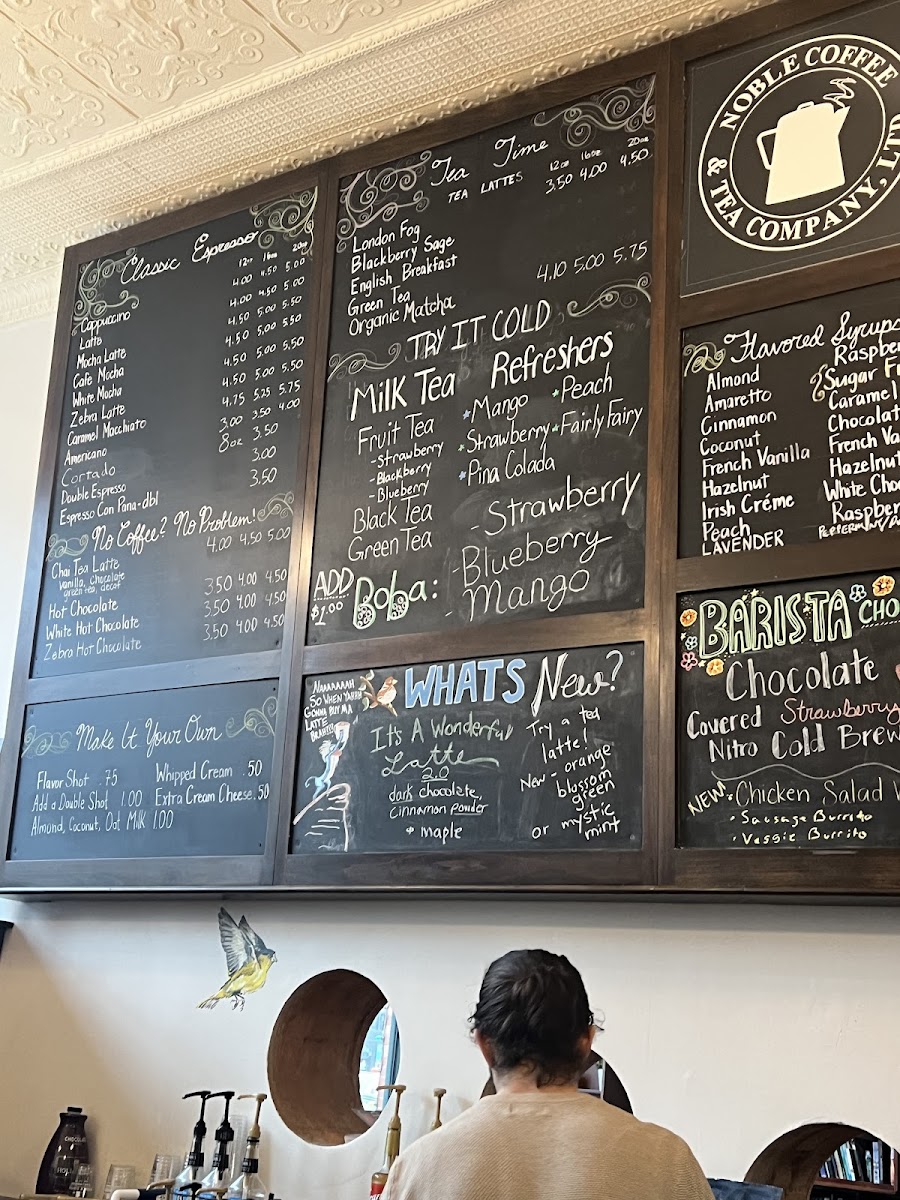 Classic Espresso
12oz 16oz 20oz
Cappuccino 4.00 4.50 5.00
Latte 4.00 4.50 5.00
Mocha Latte 4.50 5.00 5.50
Cafe Mocha 4.50 5.00 5.50
White Mocha 4.50 5.00 5.50
Zebra Latte 4.50 5.00 5.50
Caramel Macchiato 4.75 5.25 5.75
Americano 3.00 3.50 4.00
Cortado 8oz 3.50
Double Espresso 3.00
Espresso Con Pana-dbl 3.50
No Coffee? No Problem!
Chai Tea Latte 4.00 4.50 5.00
Vanilla, chocolate
green tea, decaf
Hot Chocolate 3.50 4.00 4.50
White Hot Chocolate 3.50 4.00 4.50
Zebra Hot Chocolate 3.50 4.00 4.50
Make It Your Own
Flavor Shot .75 Whipped Cream .50
Add a Double Shot 1.00 Extra Cream Cheese .50
Almond, Coconut, Oat Milk 1.00
Tea Time
12oz 16oz 20oz
TEA LATTES 3.50 4.00 4.50
London Fog
Blackberry Sage
English Breakfast
Green Tea
Organic Matcha 4.10 5.00 5.75
TRY IT COLD
Milk Tea Refreshers
Fruit Tea
-Strawberry
-Blackberry
-Blueberry
Black Tea
Green Tea
Mango Peach
Strawberry Fairly Fairy
Pina Colada
ADD
$1.00
Boba:
- Strawberry
- Blueberry
- Mango
NAAAAAAH
SO WHEN YA
GONNA BUY MA
LATTE
WHATS New?
It's A Wonderful
Latte
2.0
dark chocolate,
Cinnamon powder
+ maple
Try a tea
latte!
New - orange
blossom
green
or mystic
mint
NOBLE COFFEE
& TEA COMPANY, LTD
Flavored Syrups
Almond
Amaretto
Cinnamon
Coconut
French Vanilla
Hazelnut
Irish Créme
Peach
LAVENDER
Raspber
Sugar Fr
Caramel
Chocolat
French Va
Hazelnut
White Choc
Raspber
BARISTA CHO
Chocolate
Covered Strawberry
Nitro Cold Brew
NEW
Chicken Salad
• Sausage Burrito
• Veggie Burrito